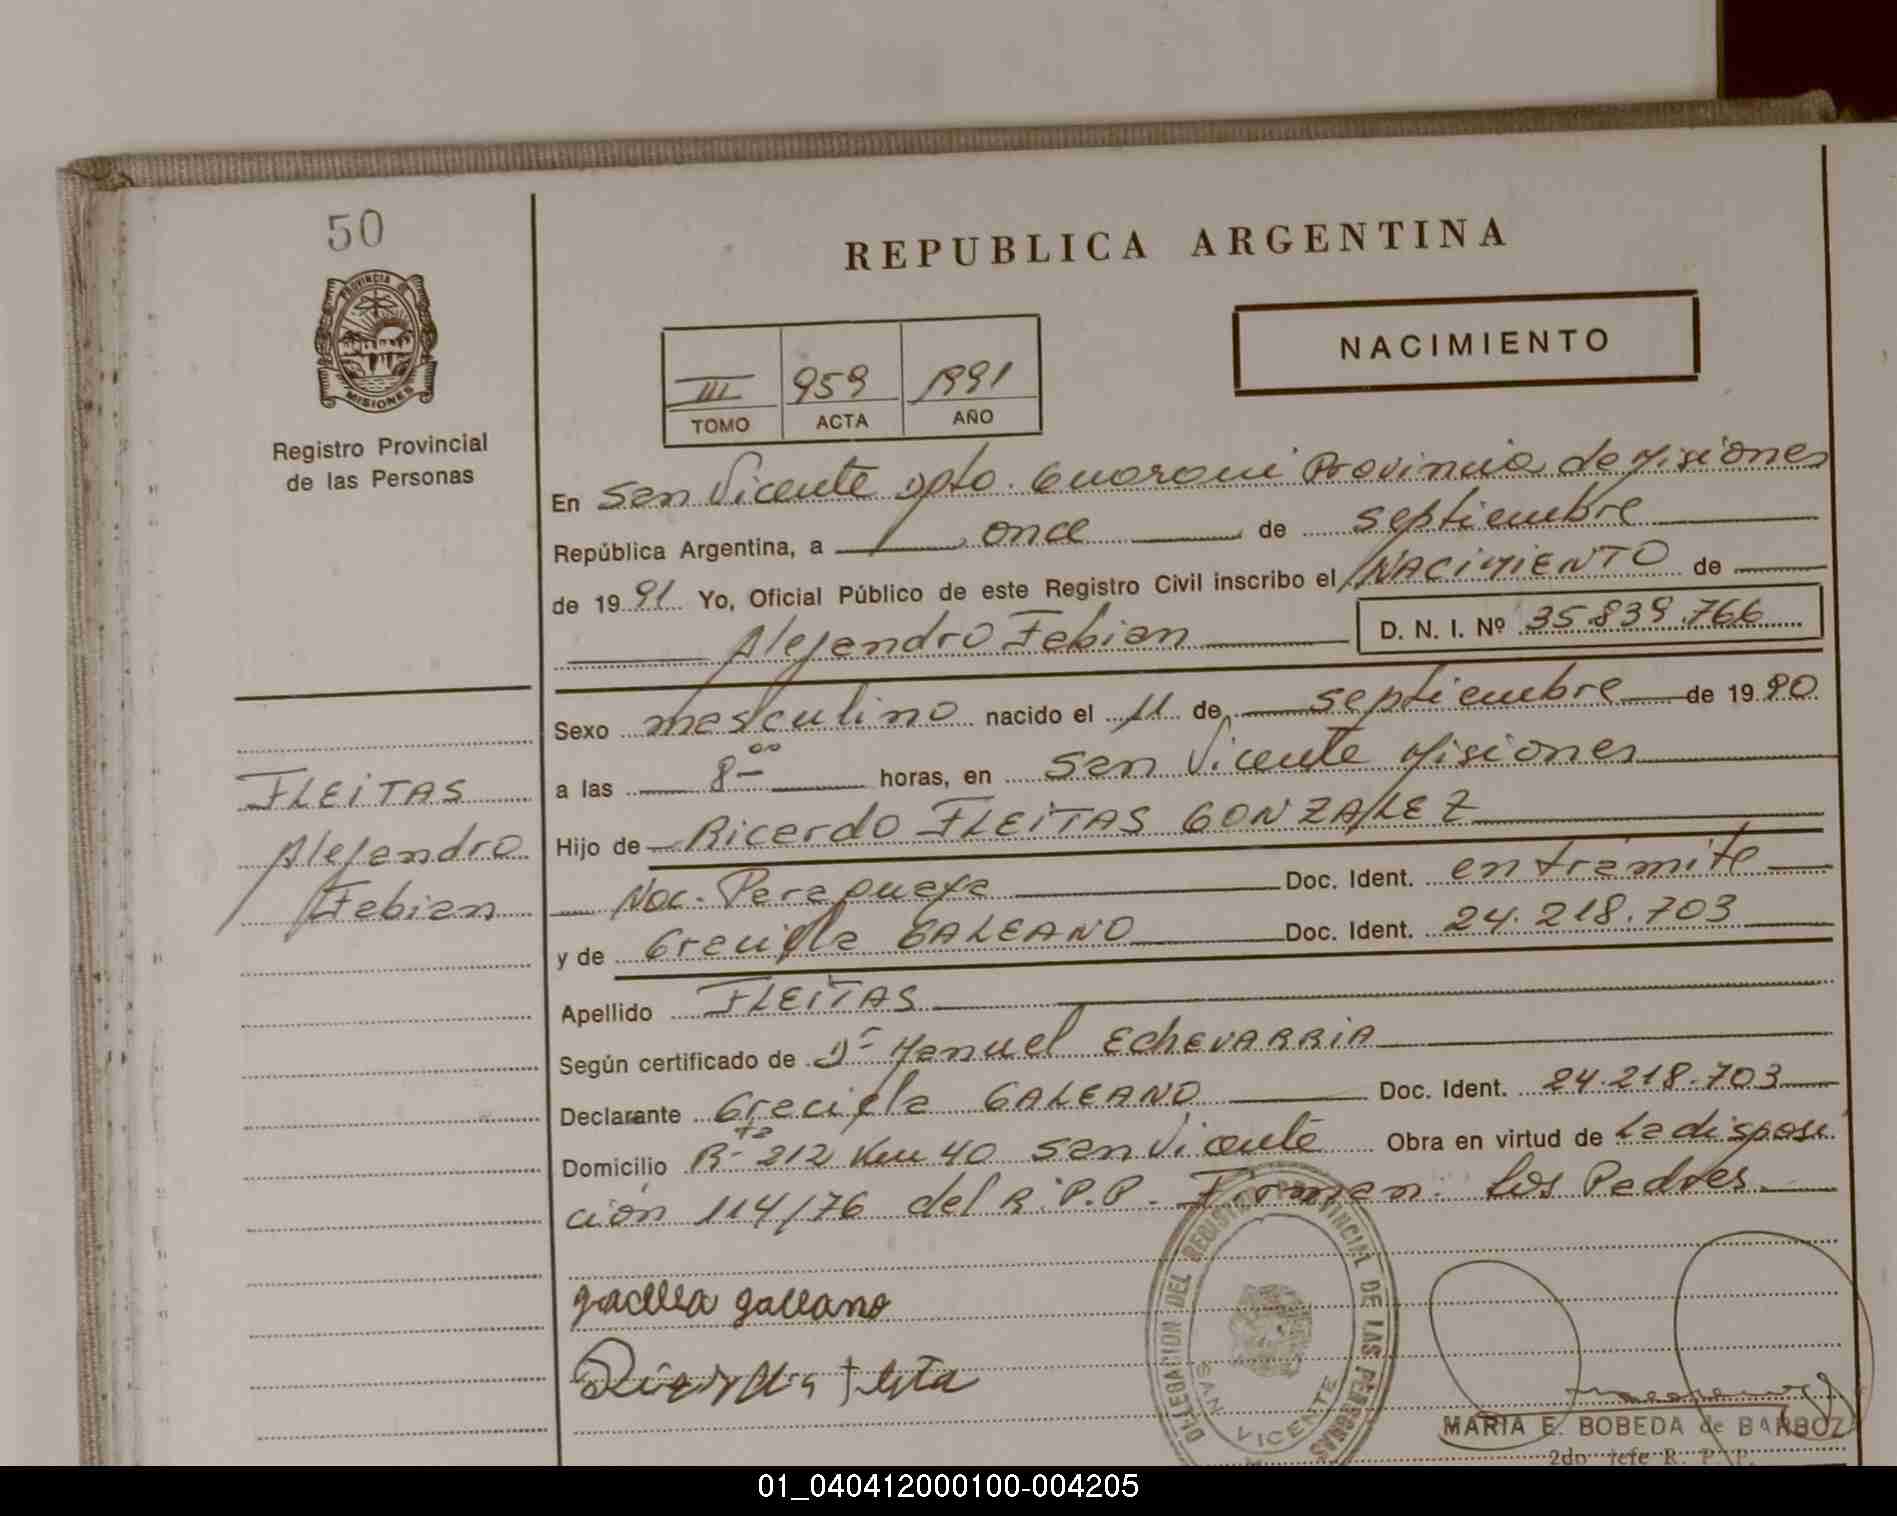 50
PROVINCIA DE
MISIONES
Registro Provincial
de las Personas
REPUBLICA ARGENTINA
NACIMIENTO
III 959 1991
TOMO ACTA AÑO
En San Vicente Dpto. Guarani Provincia de Misiones
República Argentina, a once de septiembre
de 1991 Yo, Oficial Público de este Registro Civil inscribo el NACIMIENTO de
Alejandro Fabian D. N. I. Nº 35.839.766
Sexo masculino nacido el 11 de septiembre de 1990
a las 8-00 horas, en San Vicente Misiones
Hijo de Ricardo FLEITAS GONZALEZ
Nac. Paraguaya Doc. Ident. en tramite
y de Graciela GALEANO Doc. Ident. 24.218.703
Apellido FLEITAS
Según certificado de Dr Manuel EchEVARRIA
Declarante Graciela GALEANO Doc. Ident. 24.218.703
Domicilio R-ta 212 Km 40 San Vicente Obra en virtud de La disposi
ción 114/76 del R.P.P. Firman los Padres.
FLEITAS
Alejandro
Fabian
galeano
DELEGACION DEL REGISTRO PROVINCIAL DE LAS PERSONAS
SAN VICENTE
MARIA E. BOBEDA de BARBOZ
2do Jefe R. P. P.
01_040412000100-004205